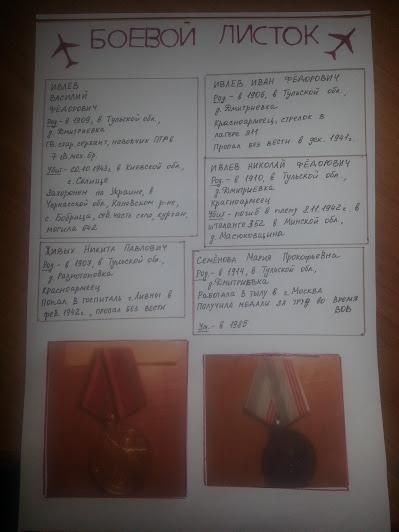 БОЕВОЙ ЛИСТОК
ИВЛЕВ
ВАСИЛИЙ
ФЁДОРОВИЧ
Род.- в 1909, в Тульской обл.,
д. Дмитриевка
гв. стар. сержант, наводчик ПТР 6
7 гв. мех. бр.
Убит - 20.10.1943г. в Киевской обл.,
с. Селище
Захоронен на Украине, в
Черкасской обл., Каневском р-не,
с. Бобрица, сев. часть села, курган,
могила 642
ИВЛЕВ ИВАН ФЁДОРОВИЧ
Род.- в 1906, в Тульской обл.,
д. Дмитриевка
Красноармеец, стрелок в
лагере 311
Пропал без вести в дек. 1941г.
ИВЛЕВ НИКОЛАЙ ФЁДОРОВИЧ
Род - в 1910, в Тульской обл.,
д. Дмитриевка
Красноармеец
Убит - погиб в плену 2.11.1942г. в
шталаге 352 в Минской обл.,
д. Масюковщина
Живых Никита Павлович
Род.- в 1907, в Тульской обл.,
Красноармеец
Попал в госпиталь г. Ливны в
фев. 1942г., пропал без вести
Семёнова Мария Прокофьевна
Род.- в 1914, в Тульской обл.,
д. Дмитриевка
Работала в тылу в г. Москва
Получила медали за труд во время
ВОВ
Ум.- в 1985